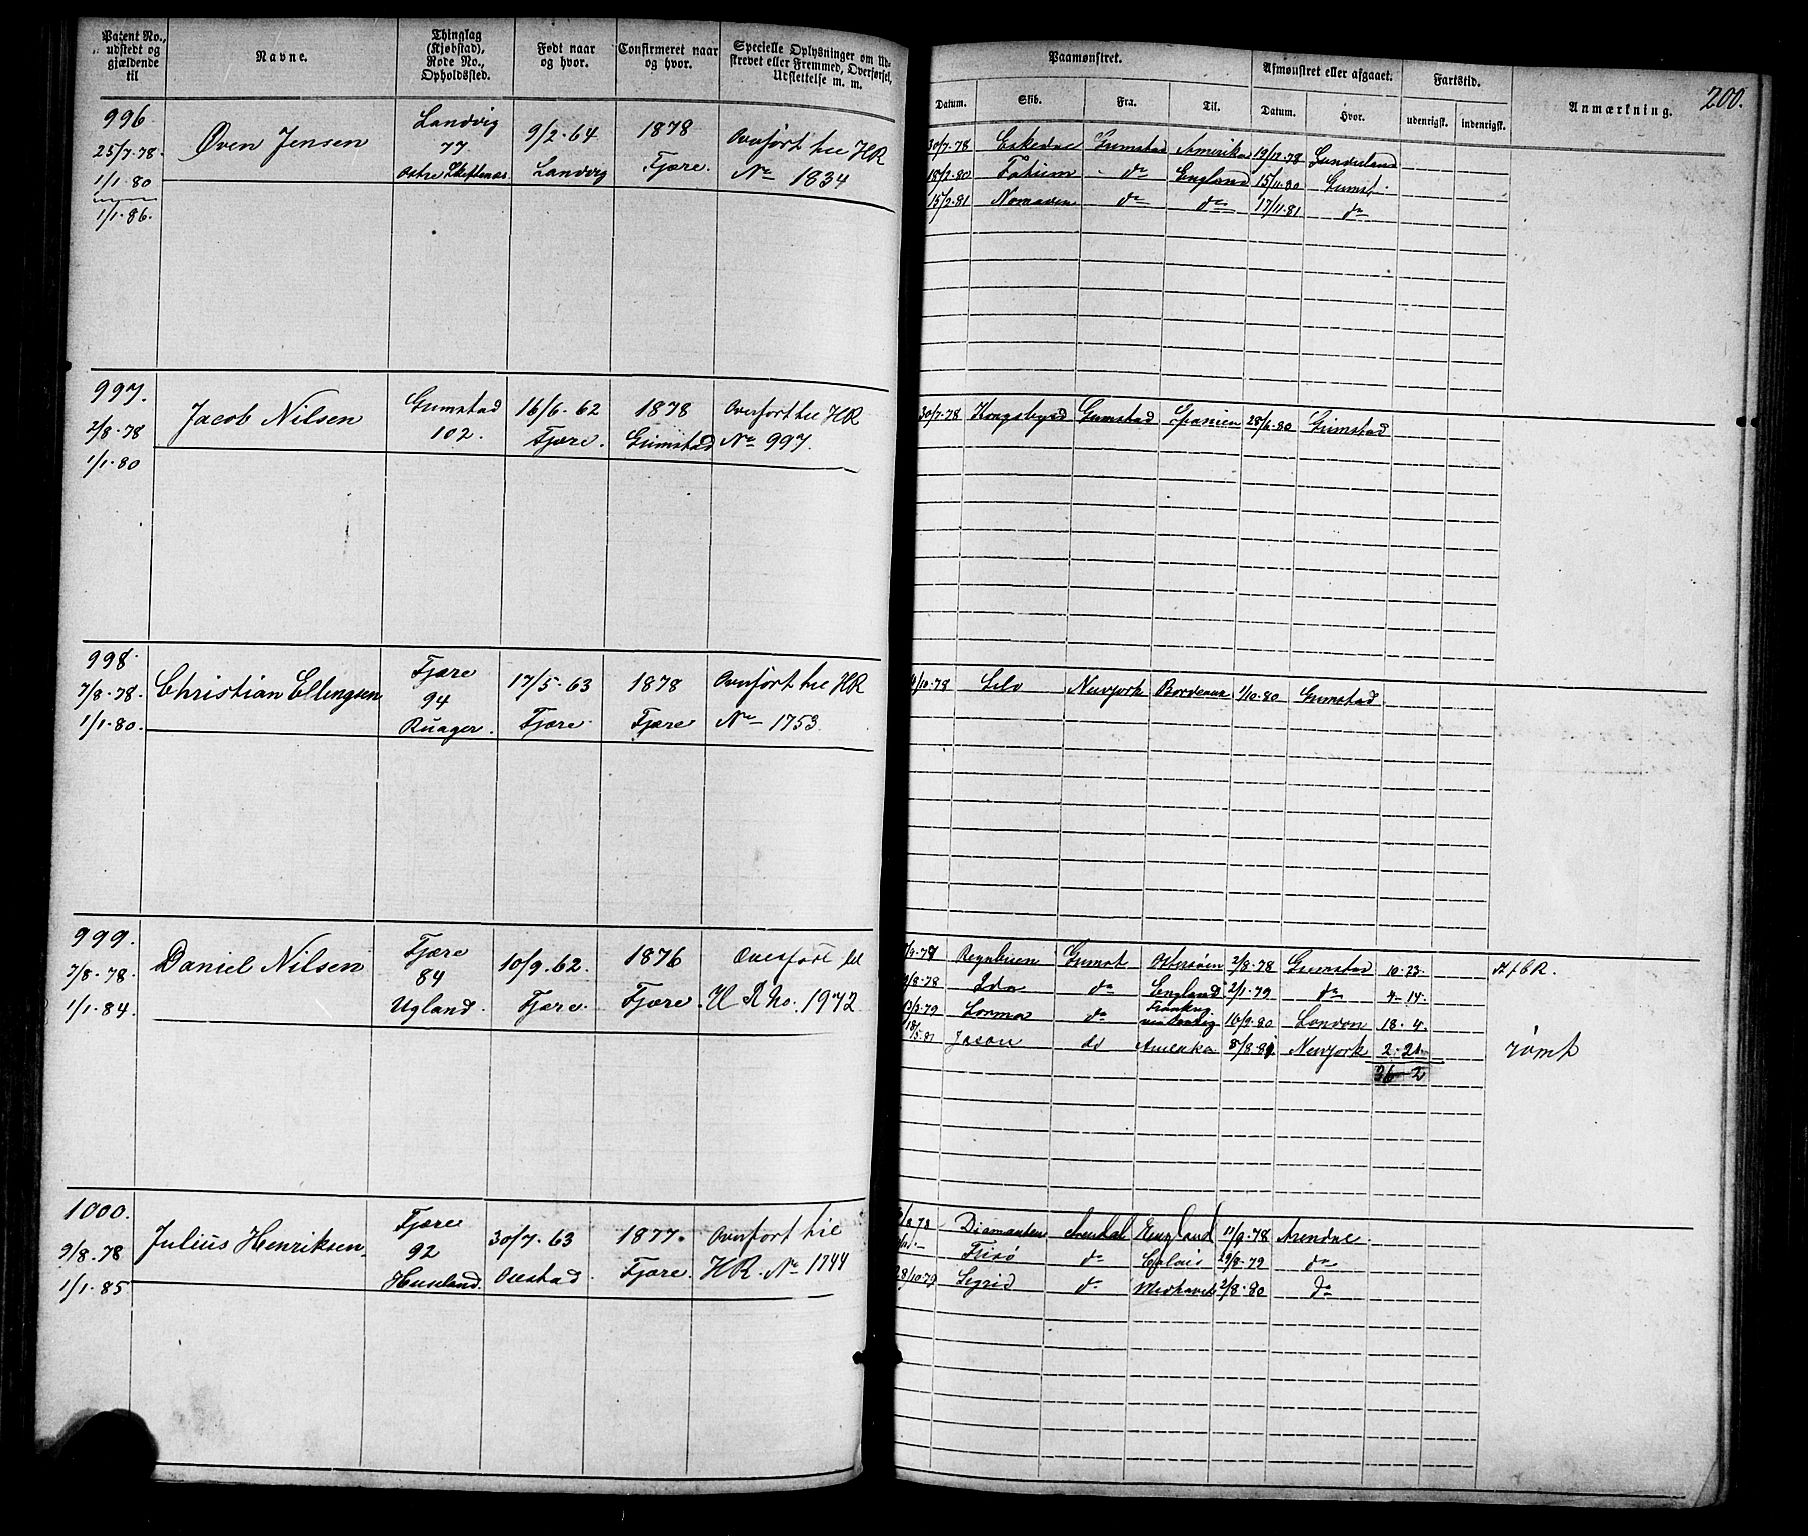 200.
Patent No., udstedt og gjældende til
Navne.
Thinglag (Kjøbstad), Rode No., Opholdssted.
Født naar og hvor.
Confirmeret naar og hvor.
Specielle Oplysninger om Udskrevet eller Fremmed, Overførsel, Udslettelse m. m.
Paamønstret.
Datum.
Skib.
Fra.
Til.
Afmønstret eller afgaaet.
Datum.
Hvor.
Fartstid.
udenrigsk.
indenrigsk.
Anmærkning.
996
25/7.78.
1/1.80
1/1.86.
Øven Jensen
Landvig
77.
9/2.64
Landvig
1878
Fjære.
Overført til HR
No 1834
30/7.78 Grimstad Amerika 19/12.78 Sunderland
18/2.80 do England 15/11.80 Grimst.
15/2.81 Nomaden do do 17/11.81 do
997.
2/8.78
1/1.80
Jacob Nilsen
Grimstad
102.
16/6.62
Fjære.
1878
Grimstad
Overført til HR
No 997.
30/7.78 Grimstad Spanien 28/6.80 Grimstad
998.
7/8.78.
1/1.80.
Christian Ellingsen
Fjære
94
Ruager.
17/5.63
Fjære.
1878
Fjære
Overført til HR
No 1753.
Newjork Bordeaux 1/10.80 Grimstad
999.
7/8.78.
1/1.84.
Daniel Nilsen
Fjære
84
Ugland.
10/9.62.
Fjære.
1876
Fjære.
Overført til
H R No. 1972
Regnbuen Grimst Østersøen 2/8.78 Grimstad 10.23.
Ida do England 2/1.79 do 4-14.
13/3.79 Lorma do 16/9.80 London 18.4.
18/5.81 Jason do Amerika 8/8.81 Newjork 2.21
rømt
36-2
1000.
9/8.78
1/1.85
Julius Henriksen.
Fjære
92
30/7.63
Øiestad.
1877.
Fjære.
Overført til
HR. No 1744
Diamanten Arendal England 17/9.78 Arendal.
do Calais 29/8.79 do
28/10.79 Sigrid do 2/8.80 do